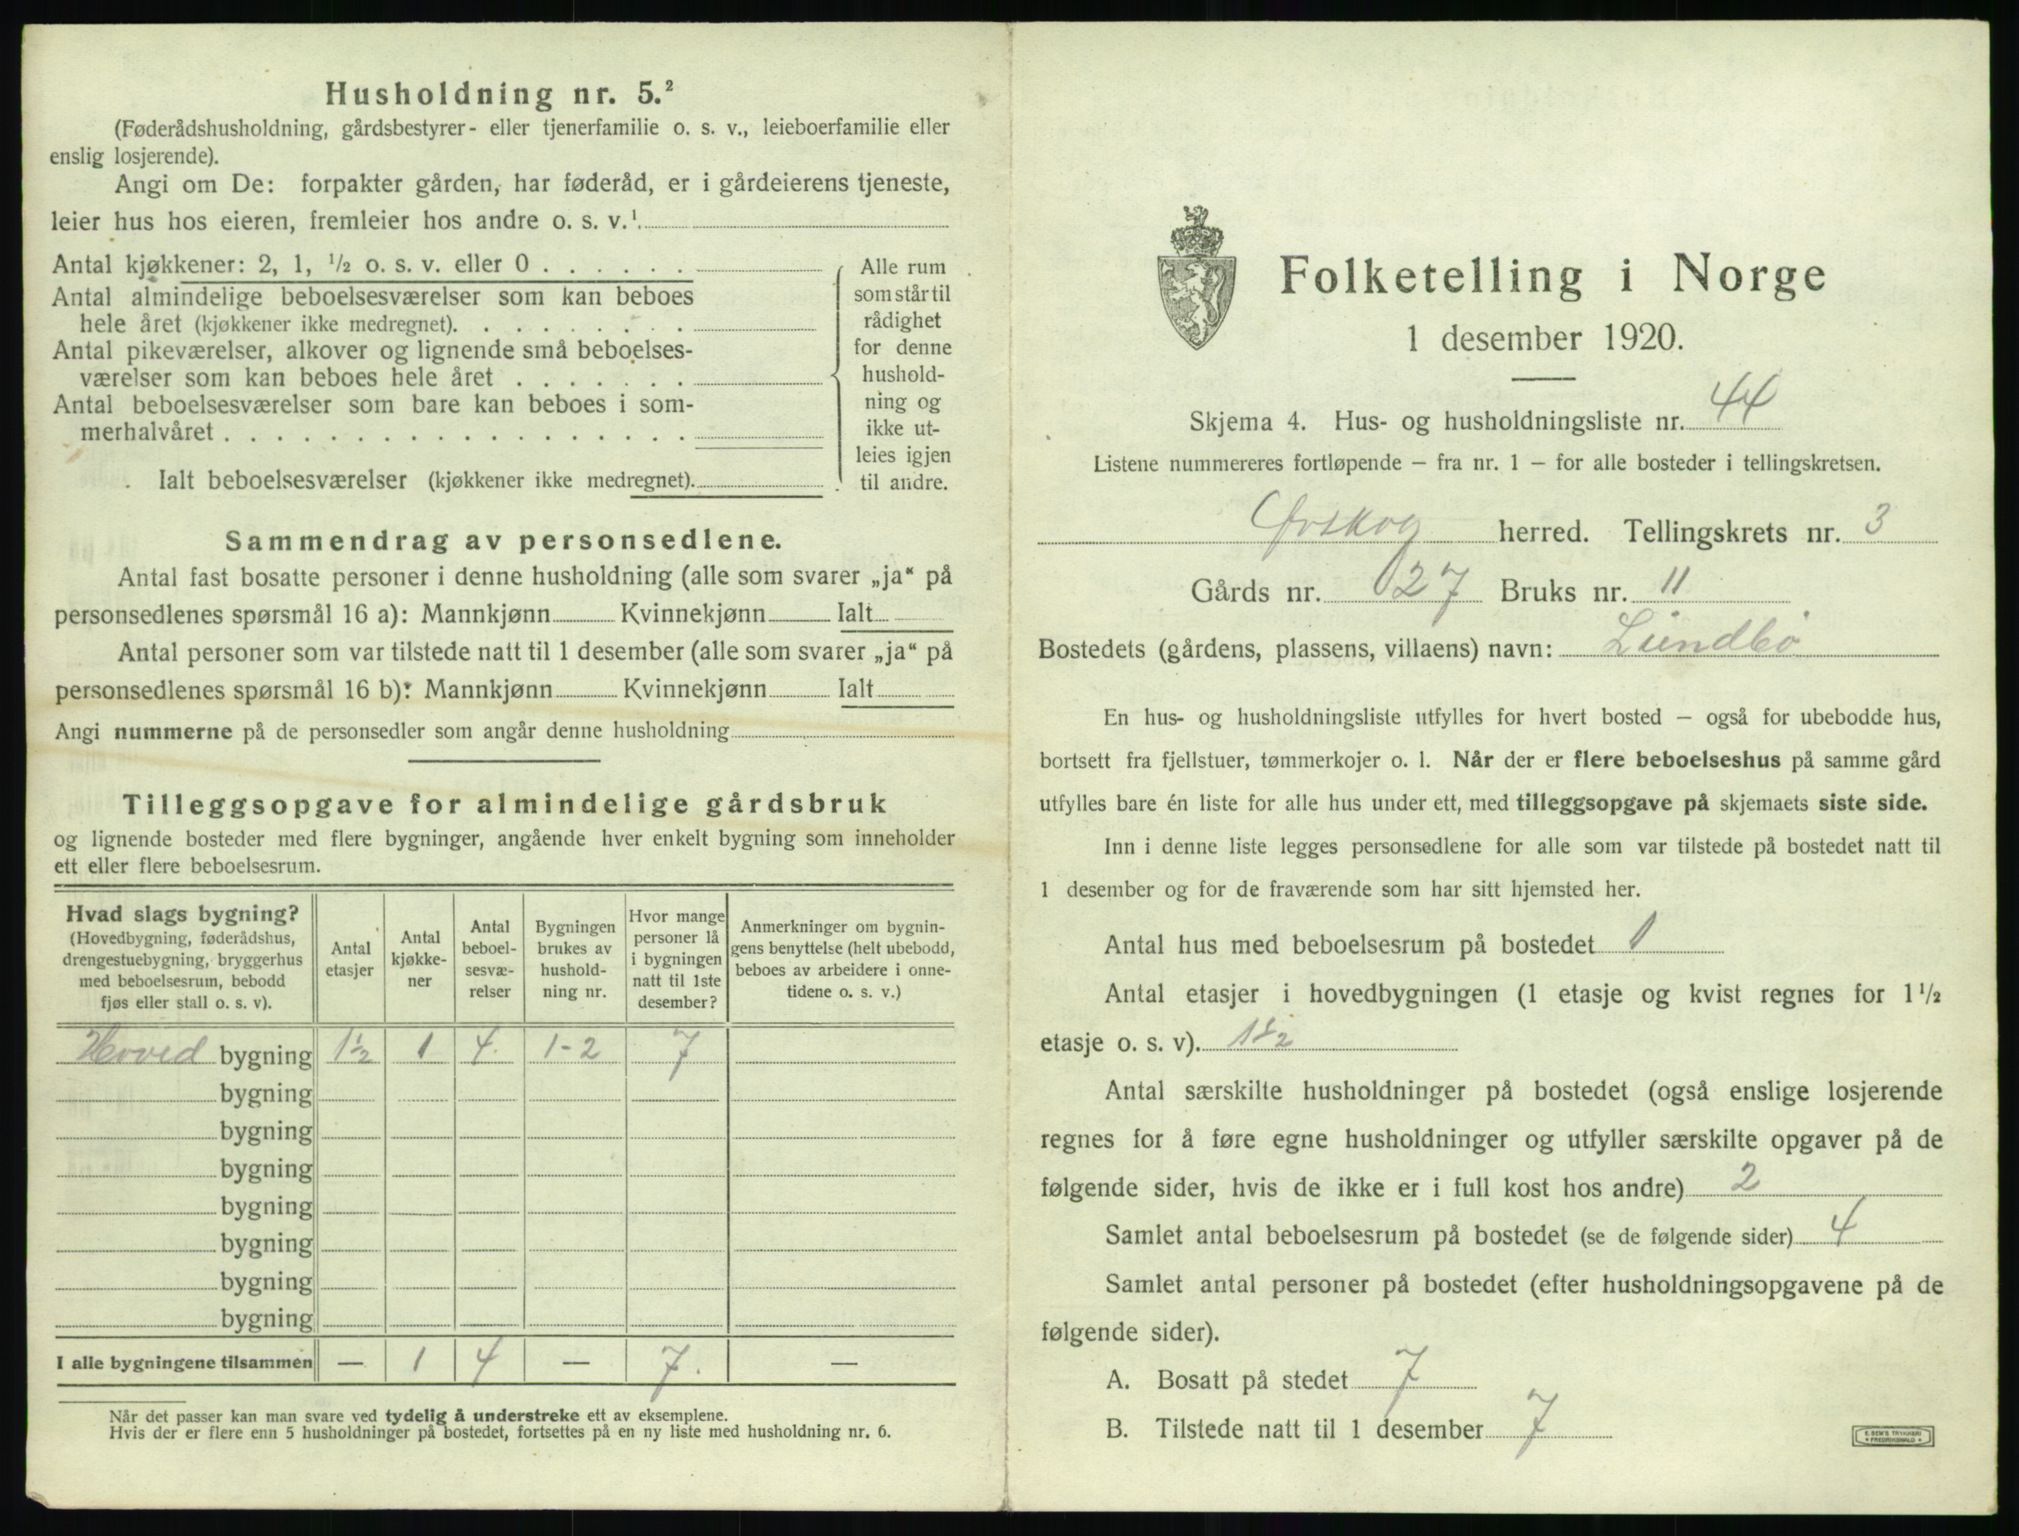 Husholdning nr. 5.²
(Føderådshusholdning, gårdsbestyrer- eller tjenerfamilie o. s. v., leieboerfamilie eller
enslig losjerende).
Angi om De: forpakter gården, har føderåd, er i gårdeierens tjeneste,
leier hus hos eieren, fremleier hos andre o. s. v.¹
Antal kjøkkener: 2, 1, ½ o. s. v. eller 0 . . . . . .
Antal almindelige beboelsesværelser som kan beboes
hele året (kjøkkener ikke medregnet). . . . . . . . .
Antal pikeværelser, alkover og lignende små beboelses-
værelser som kan beboes hele året . . . . . . .
Antal beboelsesværelser som bare kan beboes i som-
merhalvåret . . . . . . . . . . . . . . . . . .
Ialt beboelsesværelser (kjøkkener ikke medregnet).
Alle rum
som står til
rådighet
for denne
hushold-
ning og
ikke ut-
leies igjen
til andre.
Sammendrag av personsedlene.
Antal fast bosatte personer i denne husholdning (alle som svarer „ja“ på
personsedlenes spørsmål 16 a): Mannkjønn Kvinnekjønn Ialt
Antal personer som var tilstede natt til 1 desember (alle som svarer „ja“ på
personsedlenes spørsmål 16 b): Mannkjønn Kvinnekjønn Ialt
Angi nummerne på de personsedler som angår denne husholdning
Tilleggsopgave for almindelige gårdsbruk
og lignende bosteder med flere bygninger, angående hver enkelt bygning som inneholder
ett eller flere beboelsesrum.
Hvad slags bygning?
(Hovedbygning, føderådshus,
drengestuebygning, bryggerhus
med beboelsesrum, bebodd
fjøs eller stall o. s. v).
Antal
etasjer
Antal
kjøkke-
ner
Antal
beboel-
sesvæ-
relser
Bygningen
brukes av
hushold-
ning nr.
Hvor mange
personer lå
i bygningen
natt til 1ste
desember?
Anmerkninger om bygnin-
gens benyttelse (helt ubebodd,
beboes av arbeidere i onne-
tidene o. s. v.)
Hoved bygning 1½ 1 4. 1-2 7
bygning
bygning
bygning
bygning
bygning
bygning
bygning
I alle bygningene tilsammen — 1 4 — 7. —
Når det passer kan man svare ved tydelig å understreke ett av eksemplene.
Hvis der er flere enn 5 husholdninger på bostedet, fortsettes på en ny liste med husholdning nr. 6.
Folketelling i Norge
1 desember 1920.
Skjema 4. Hus- og husholdningsliste nr. 44
Listene nummereres fortløpende — fra nr. 1 — for alle bosteder i tellingskretsen.
Ørskog herred. Tellingskrets nr. 3
Gårds nr. 27 Bruks nr. 11
Bostedets (gårdens, plassens, villaens) navn: Lundbö
En hus- og husholdningsliste utfylles for hvert bosted — også for ubebodde hus,
bortsett fra fjellstuer, tømmerkojer o. l. Når der er flere beboelseshus på samme gård
utfylles bare én liste for alle hus under ett, med tilleggsopgave på skjemaets siste side.
Inn i denne liste legges personsedlene for alle som var tilstede på bostedet natt til
1 desember og for de fraværende som har sitt hjemsted her.
Antal hus med beboelsesrum på bostedet 1
Antal etasjer i hovedbygningen (1 etasje og kvist regnes for 1½
etasje o. s. v). 1½
Antal særskilte husholdninger på bostedet (også enslige losjerende
regnes for å føre egne husholdninger og utfyller særskilte opgaver på de
følgende sider, hvis de ikke er i full kost hos andre) 2
Samlet antal beboelsesrum på bostedet (se de følgende sider) 4
Samlet antal personer på bostedet (efter husholdningsopgavene på de
følgende sider).
A. Bosatt på stedet 7
B. Tilstede natt til 1 desember 7
E. SEM'S TRYKKERI
• FREDRIKSHALD •